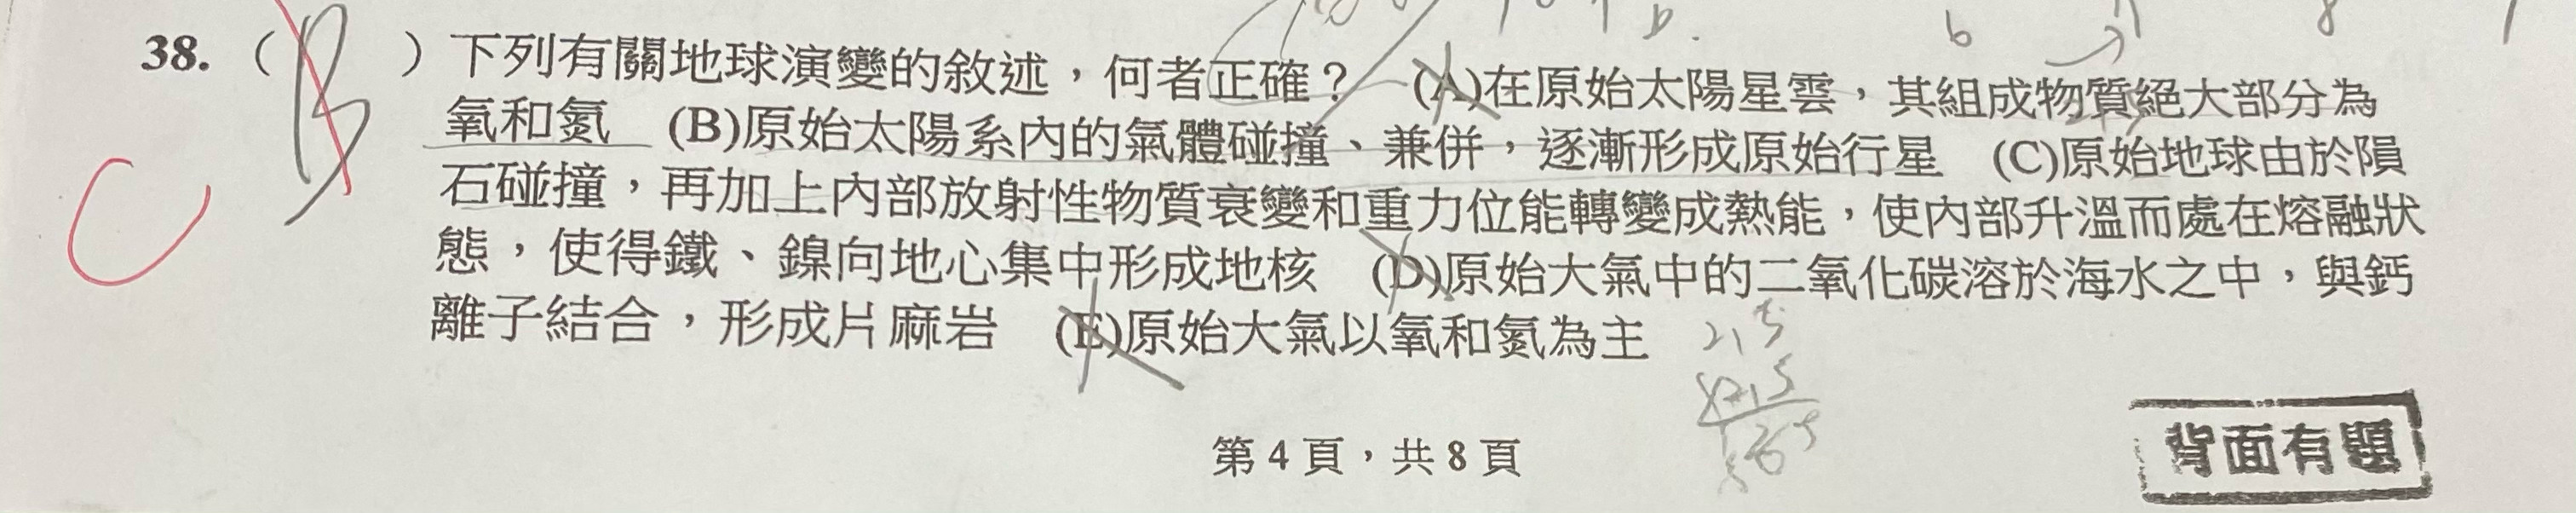 b 8
38. ( B ) 下列有關地球演變的敘述，何者正確？ (A)在原始太陽星雲，其組成物質絕大部分為
氧和氮 (B)原始太陽系內的氣體碰撞、兼併，逐漸形成原始行星 (C)原始地球由於隕
C
石碰撞，再加上內部放射性物質衰變和重力位能轉變成熱能，使內部升溫而處在熔融狀
態，使得鐵、鎳向地心集中形成地核 (D)原始大氣中的二氧化碳溶於海水之中，與鈣
離子結合，形成片麻岩 (E)原始大氣以氧和氮為主
第 4 頁，共 8 頁
背面有題